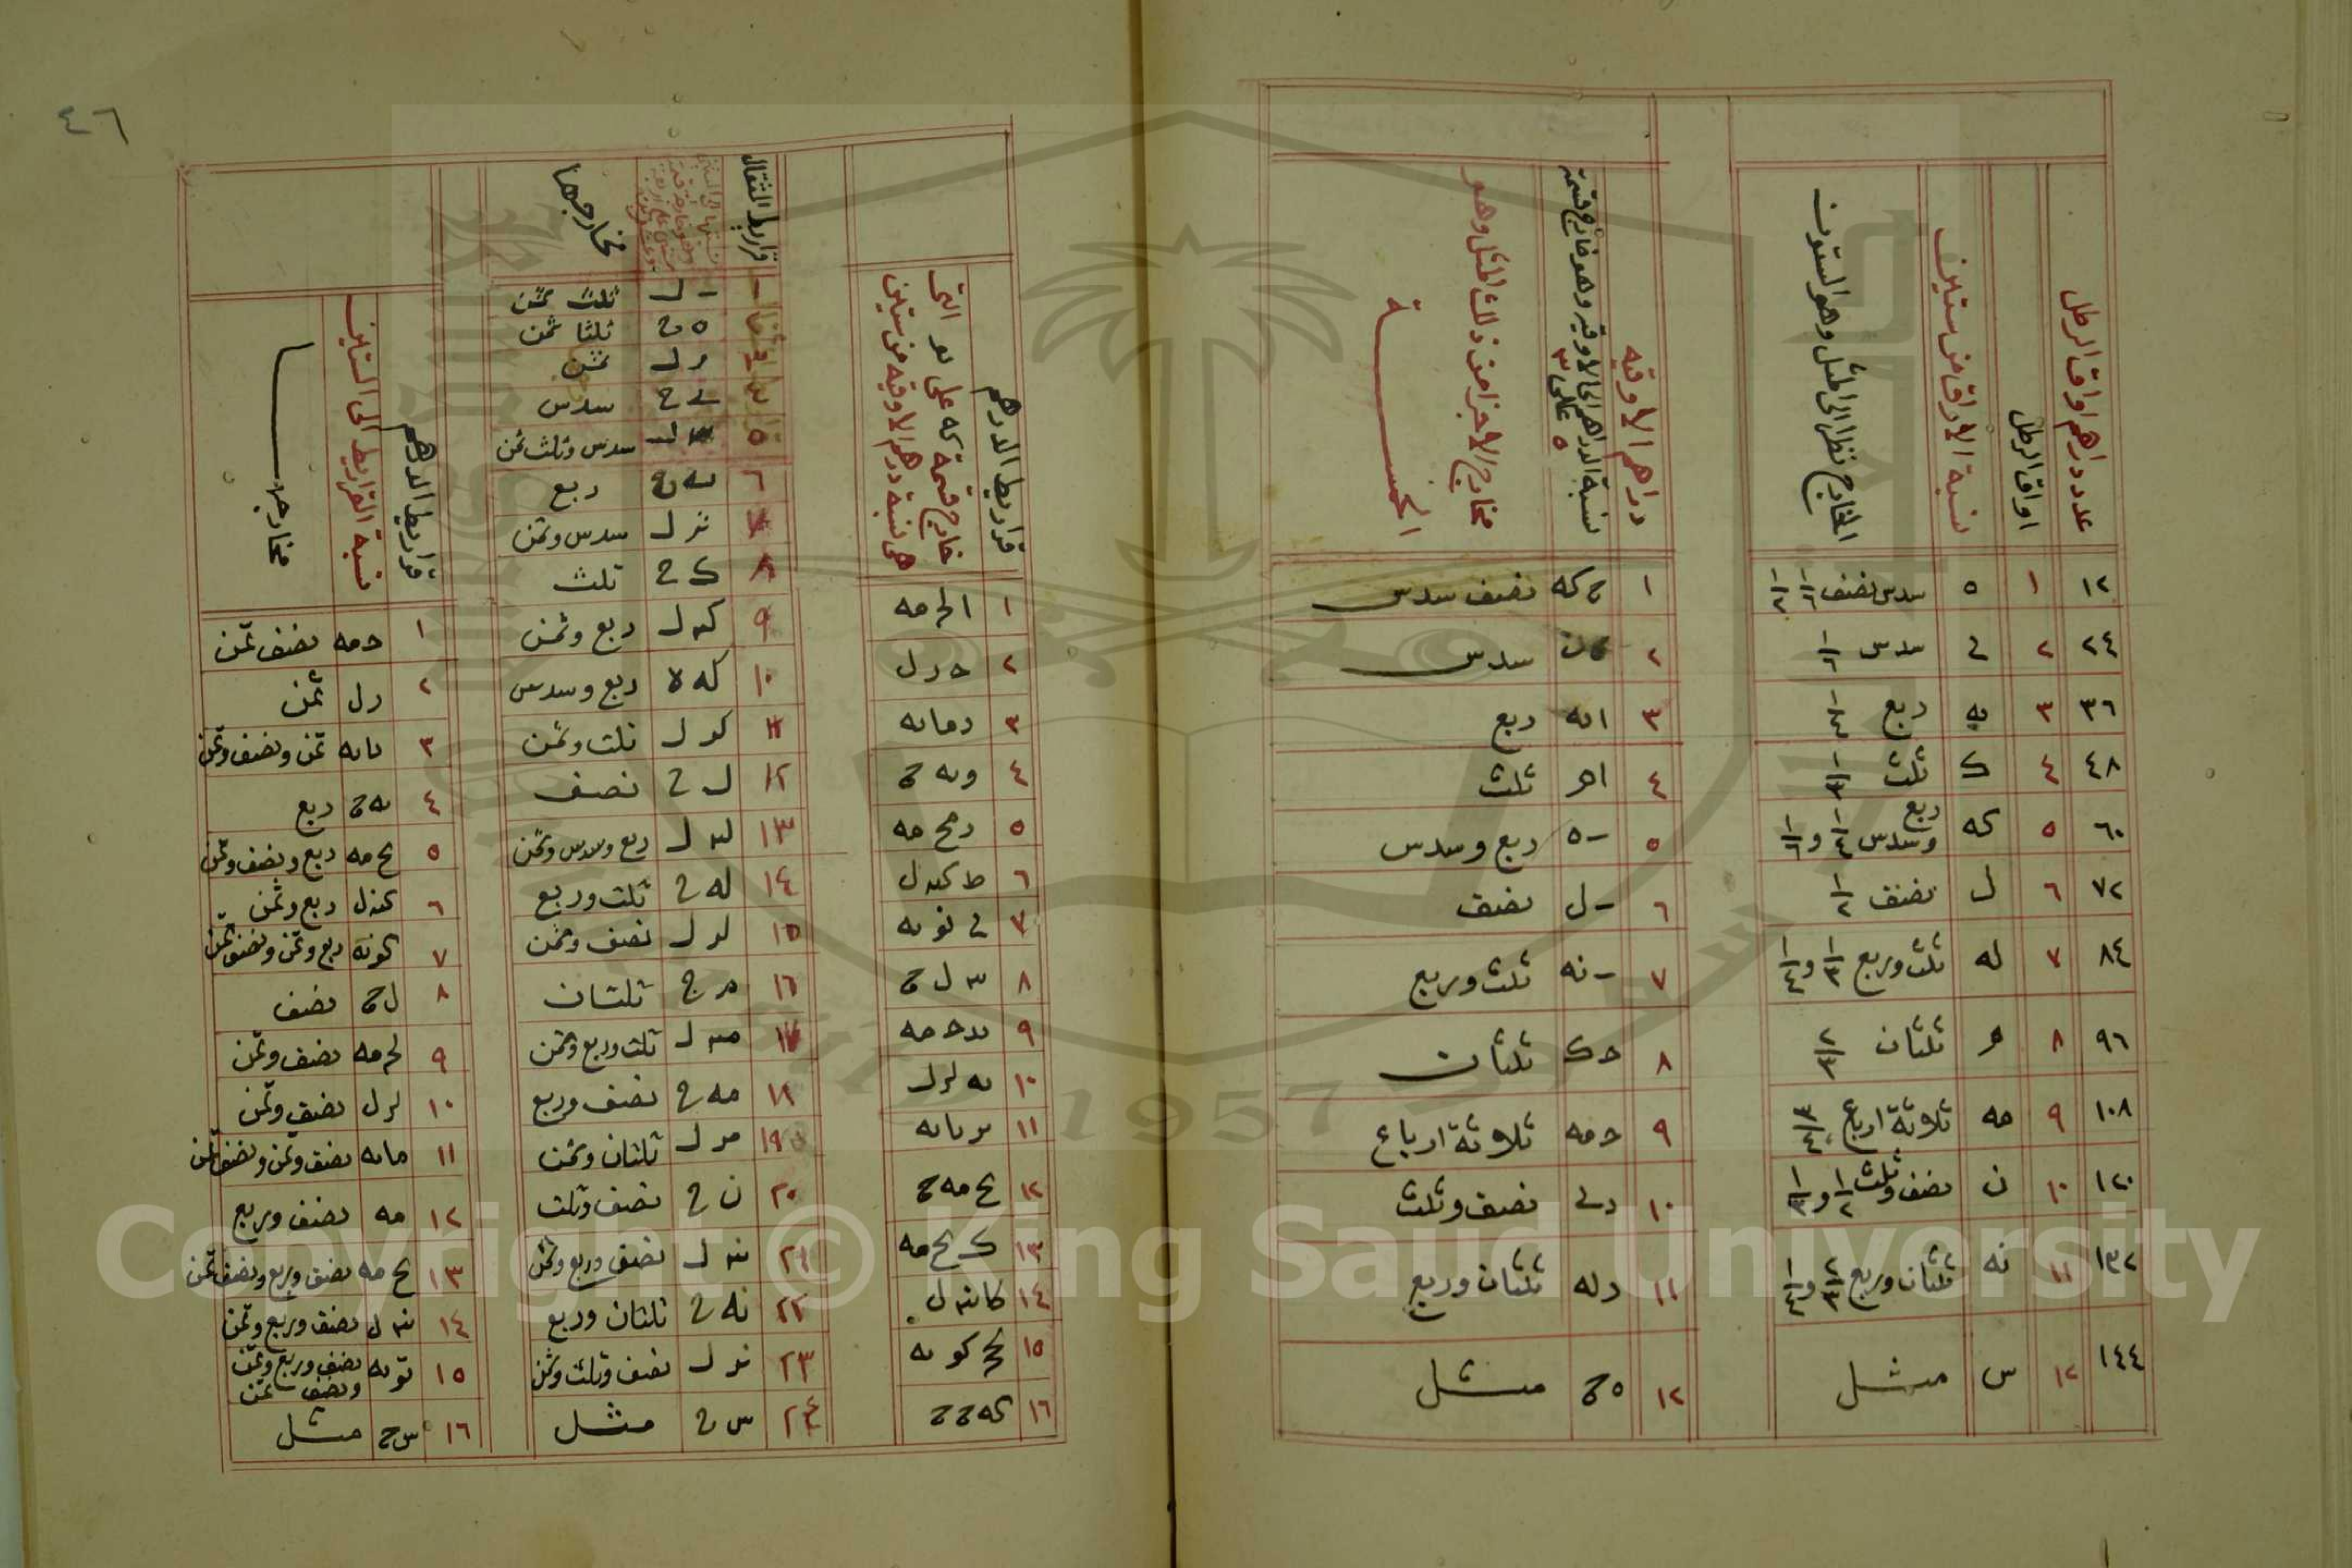 عدد دراهم اواق الرطل | اواق الرطل | نسبة الاواق من ستين | المخارج نظرا الى المثل وهو الستون
١٢ | ١ | ٥ | سدس نصف ١/٦ ١/٢
٢٤ | ٢ | ے | سدس ١/٦
٣٦ | ٣ | يه | ربع ١/٤
٤٨ | ٤ | ك | ثلث ١/٣
٦٠ | ٥ | كه | ربع وسدس ١/٤ و ١/٦
٧٢ | ٦ | ل | نصف ١/٢
٨٤ | ٧ | له | ثلث وربع ١/٣ و ١/٤
٩٦ | ٨ | م | ثلثان ٢/٣
١٠٨ | ٩ | مه | ثلاثة ارباع ٣/٤
١٢٠ | ١٠ | ن | نصف وثلث ١/٢ و ١/٣
١٣٢ | ١١ | نه | ثلثان وربع ٢/٣ و ١/٤
١٤٤ | ١٢ | س | مثل
دراهم الاوقيه | نسبة الدراهم الى الاوقيه وهو خارج قسمة ٥ على ٣ | مخارج الاجزا من ذلك المثل وهو الخمسة
١ | ح كه | نصف سدس
٢ | سدس
٣ | ا يه | ربع
٤ | ا م | ثلث
٥ | ب ه | ربع وسدس
٦ | ب ل | نصف
٧ | ب نه | ثلث وربع
٨ | ح ك | ثلثان
٩ | ح مه | ثلاثة ارباع
١٠ | د ے | نصف وثلث
١١ | د له | ثلثان وربع
١٢ | ه ح | مثل
٤٦
قراريط الدرهم | خارج قسمة كه على يو التى هى نسبة درهم الاوقيه من ستين
١ | ا لح مه
٢ | ح ر ل
٣ | د ما يه
٤ | و يه ح
٥ | ر مح مه
٦ | ط كب ل
٧ | ے نو يه
٨ | يب ل ح
٩ | يد ح مه
١٠ | يه لر ل
١١ | ير يا يه
١٢ | يح مه ح
١٣ | ك يح مه
١٤ | كا نب ل
١٥ | كح كو يه
١٦ | كه ح ح
قراريط المثقال | مخارجها
ب ل | ثلث ثمن
ه ح | ثلثا ثمن
ر ل | ثمن
ے ح | سدس
٥ | يب ل | سدس وثلث ثمن
٦ | يه ح | ربع
٧ | ير ل | سدس وثمن
٨ | ك ح | ثلث
٩ | كب ل | ربع وثمن
١٠ | كه ح | ربع وسدس
١١ | كر ل | ثلث وثمن
١٢ | ل ح | نصف
١٣ | لب ل | ربع وسدس وثمن
١٤ | له ح | ثلث وربع
١٥ | لر ل | نصف وثمن
١٦ | م ح | ثلثان
١٧ | مب ل | ثلث وربع وثمن
١٨ | مه ح | نصف وربع
١٩ | مر ل | ثلثان وثمن
٢٠ | ن ح | نصف وثلث
٢١ | نب ل | نصف وربع وثمن
٢٢ | نه ح | ثلثان وربع
٢٣ | نر ل | نصف وثلث وثمن
٢٤ | س ح | مثل
قراريط الدرهم | نسبة القراريط الى الستين | مخارجه
١ | ح مه | نصف ثمن
٢ | ر ل | ثمن
٣ | يا يه | ثمن ونصف وثمن
٤ | يه ح | ربع
٥ | يح مه | ربع ونصف وثمن
٦ | كب ل | ربع وثمن
٧ | كو يه | ربع وثمن ونصف ثمن
٨ | ل ح | نصف
٩ | لح مه | نصف وثمن
١٠ | لر ل | نصف وثمن
١١ | ما يه | نصف وثمن ونصف ثمن
١٢ | مه | نصف وربع
١٣ | مح مه | نصف وربع ونصف ثمن
١٤ | نب ل | نصف وربع وثمن
١٥ | نو يه | نصف وربع وثمن ونصف ثمن
١٦ | س ح | مثل
1957
Copyright © King Saud University